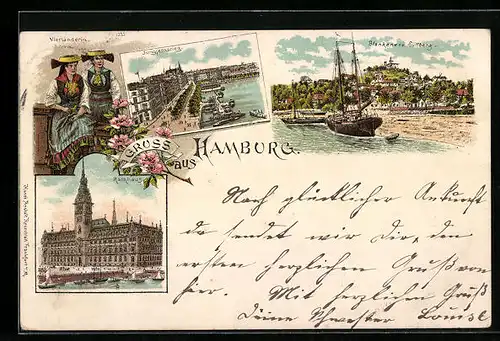 Vierländerin.
Jungfernstieg
Blankenese Süllberg.
GRUSS
AUS
HAMBURG.
Rathhaus
Nach glücklicher Ankunft
da sendet wir Dir, den
ersten herzlichen Gruß von
hier. Mit herzlichem Gruß
Deine Schwester Louise